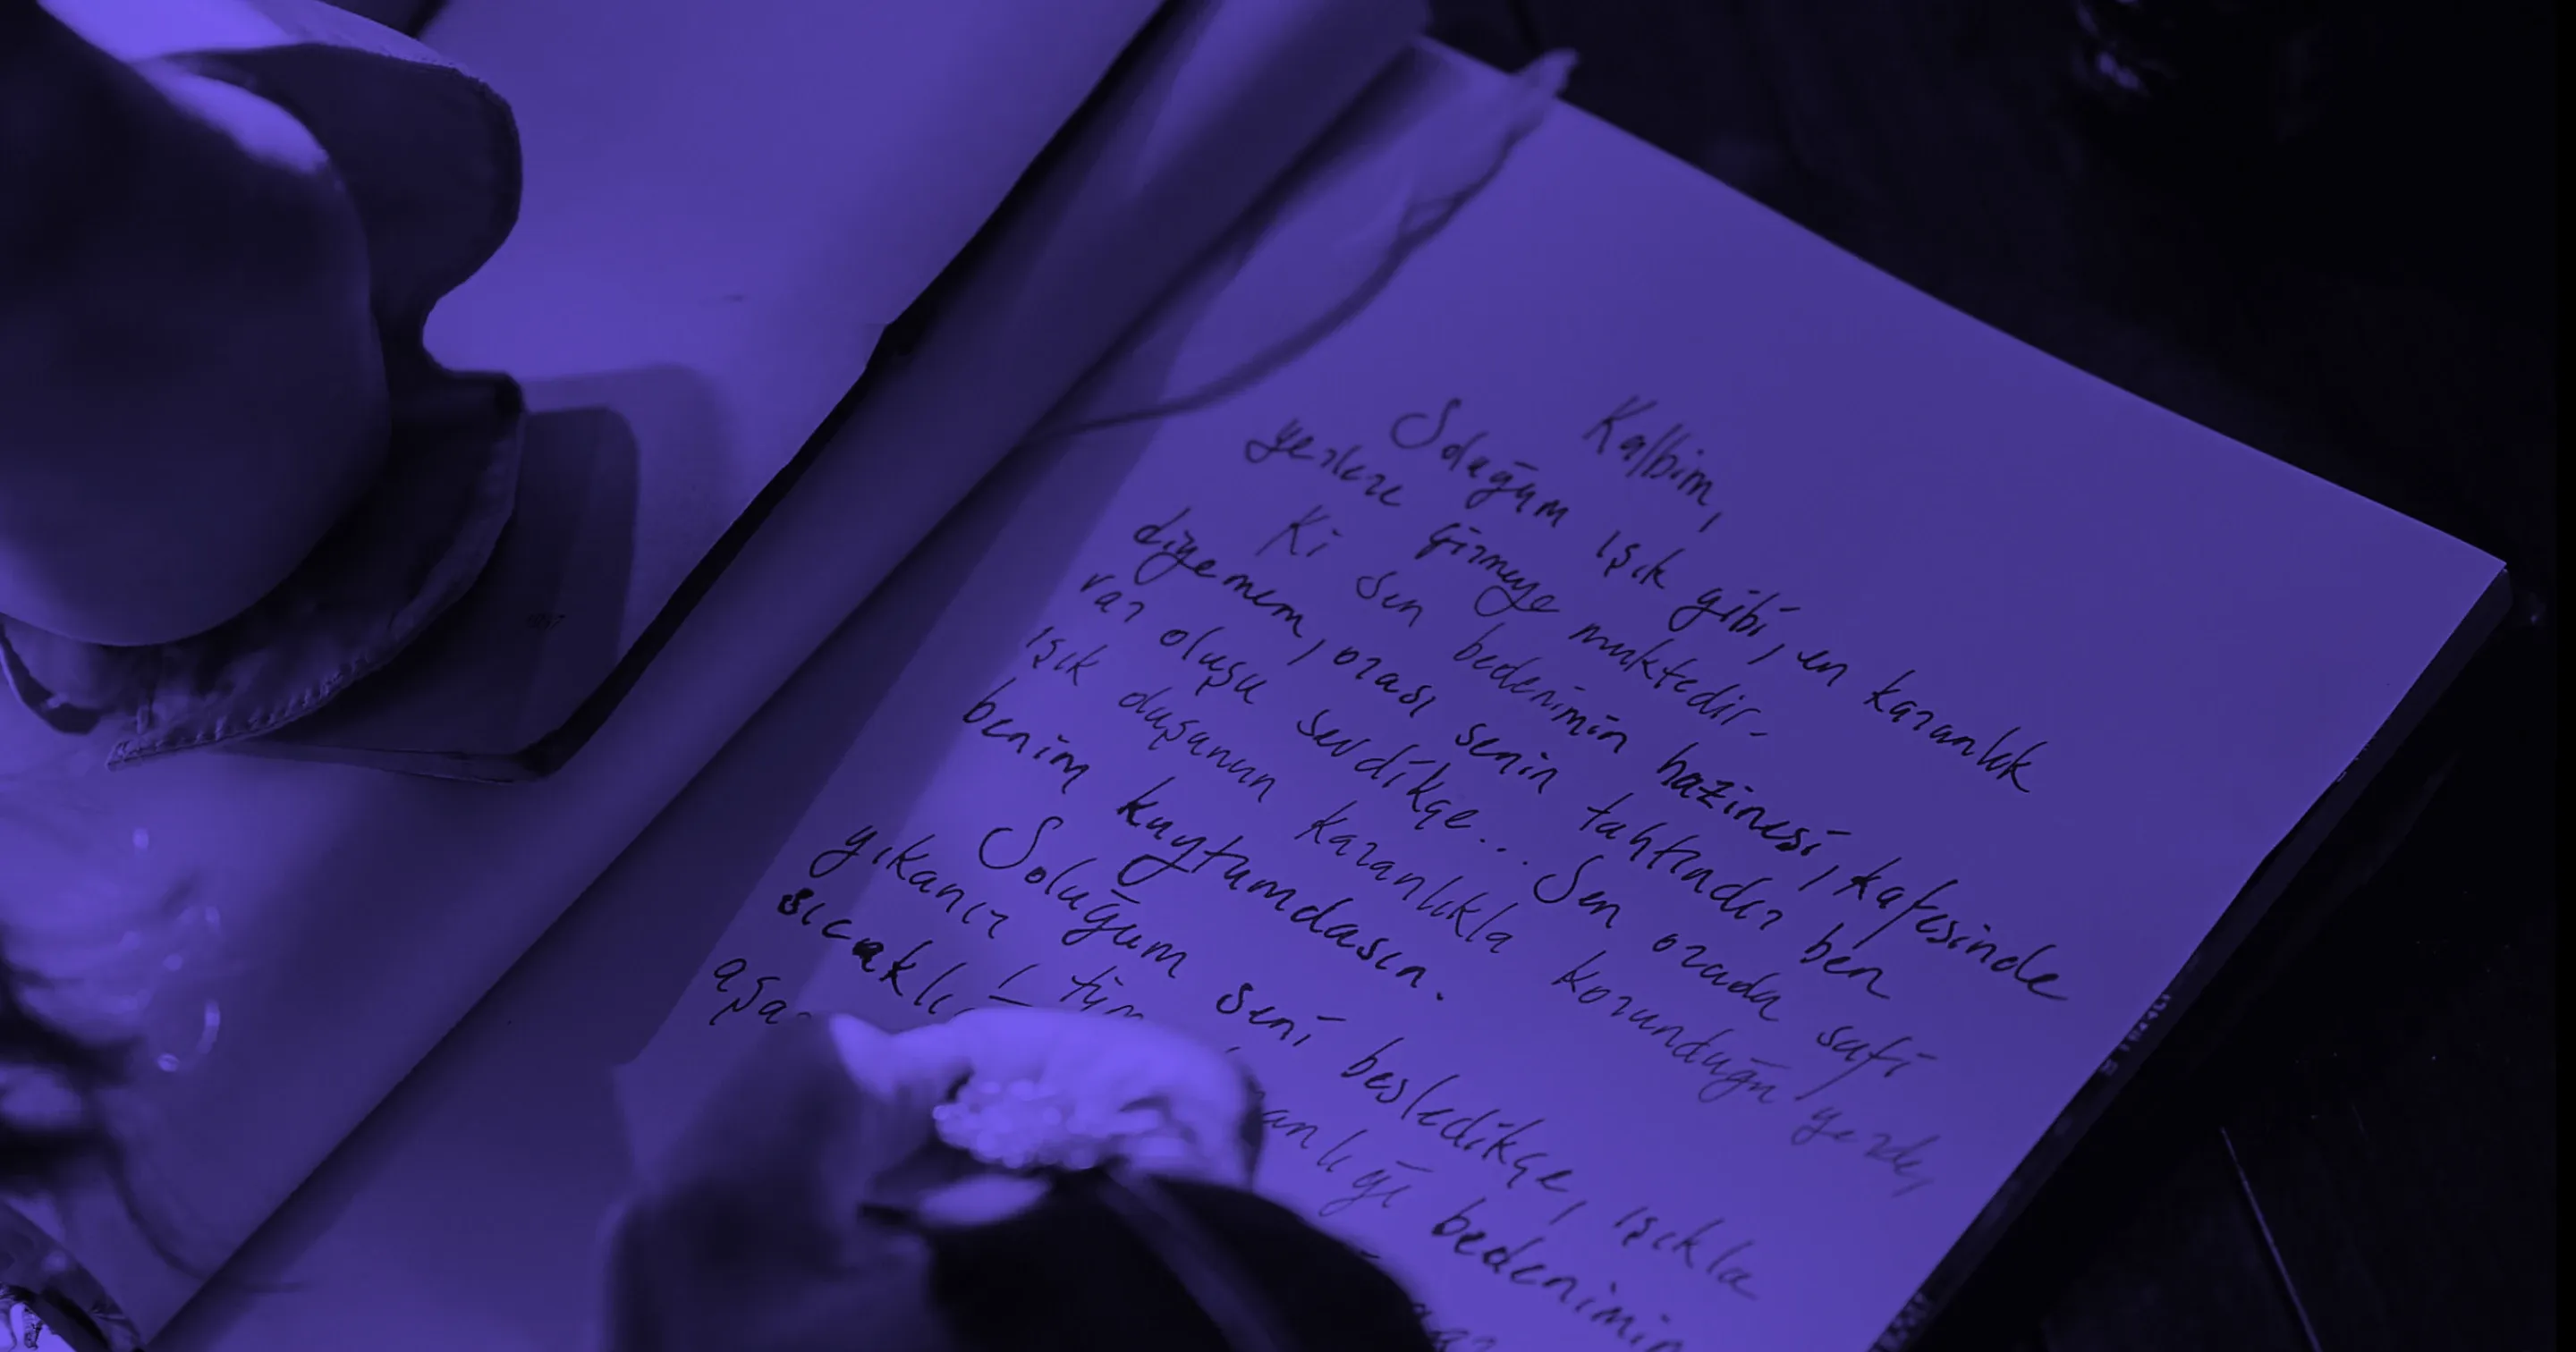 Kalbim,
Soluğum ışık gibi, en karanlık
yerlere girmeye muktedir-
Ki sen bedenimin hazinesi, kafesinde
diyemem, orası senin tahtındır ben
var oluşu sevdikçe... Sen orada safi
ışık duşunun karanlıkla korunduğu yerde,
benim kuytumdasın.
Soluğum seni besledikçe, ışıkla
yıkanır tüm bedenimin